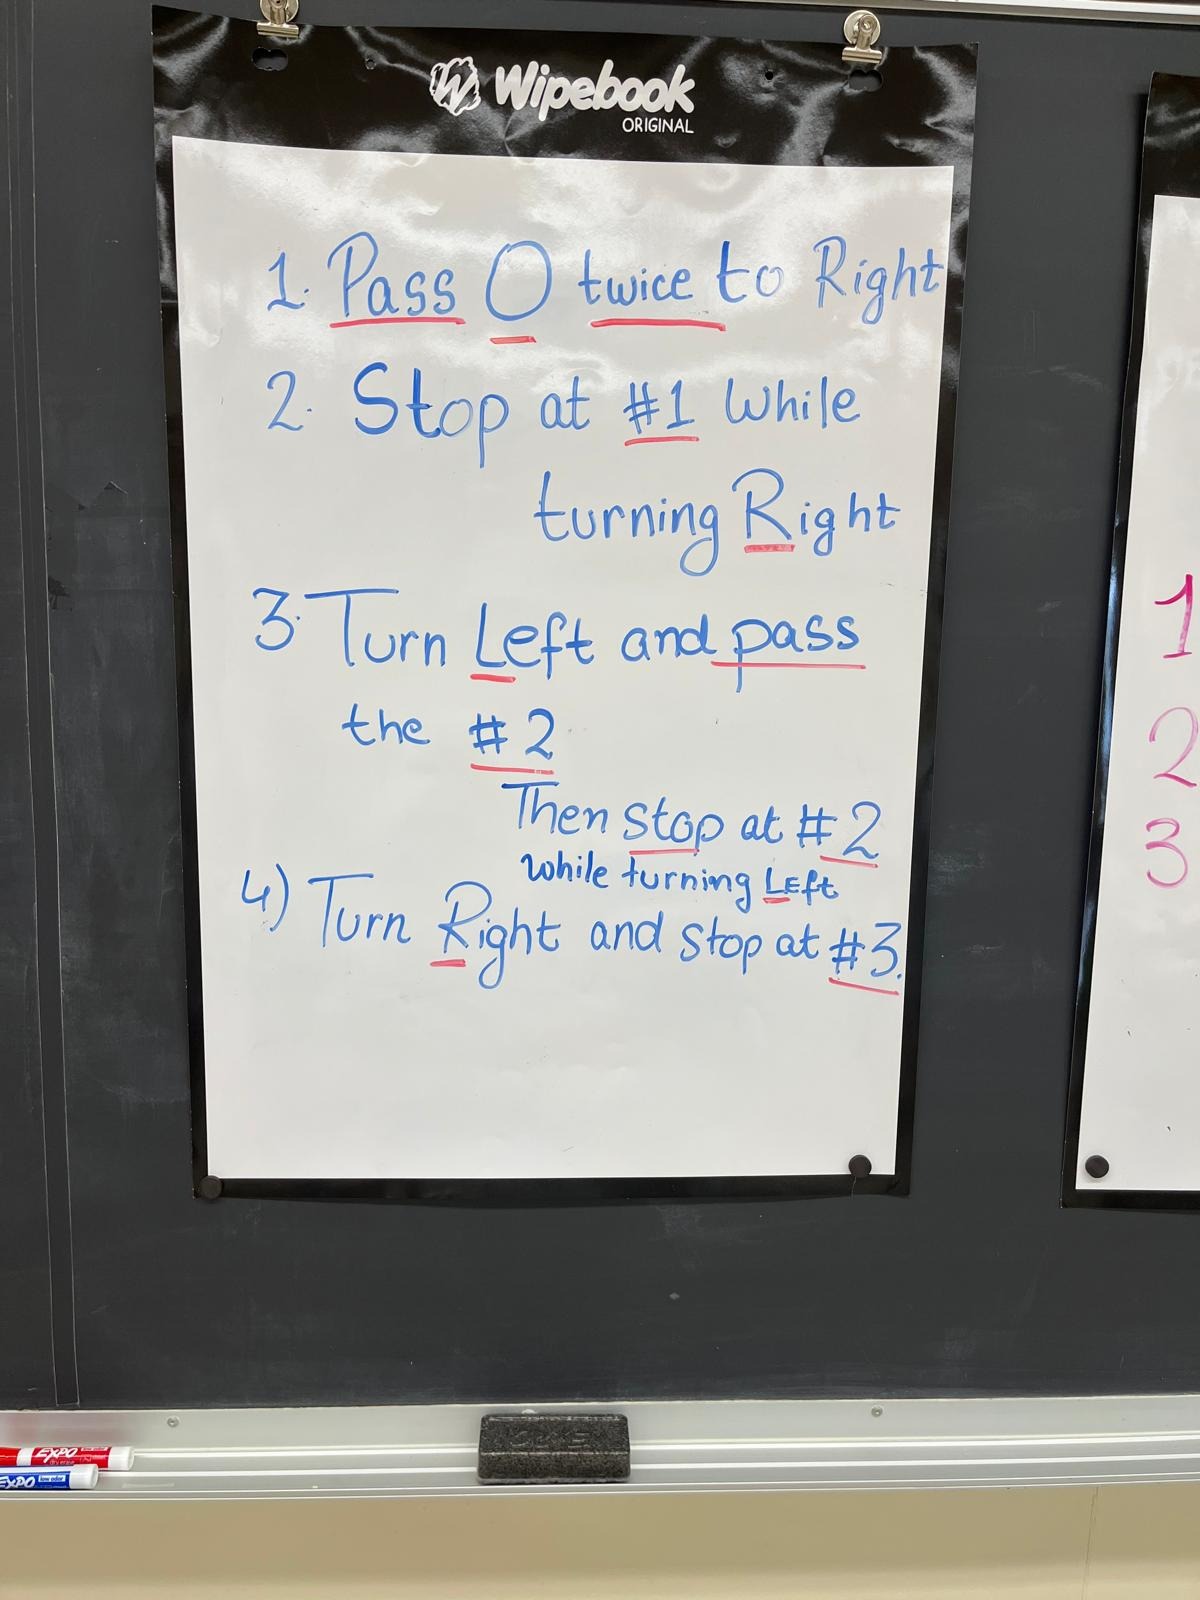 Wipebook
ORIGINAL
1. Pass O twice to Right
2. Stop at #1 While
turning Right
3. Turn Left and pass
the #2
Then stop at #2
while turning Left
4) Turn Right and stop at #3.
1
2
3
EXPO low odor
dry erase
EXPO low odor